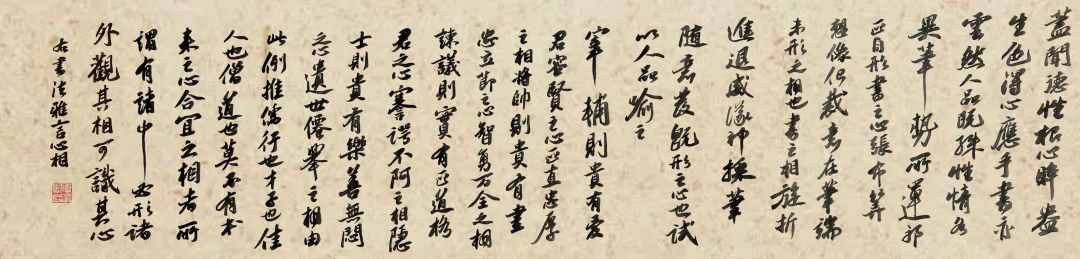 蓋聞德性根心睟盎
生色得心應手書亦
雲然人品既殊性情各
異筆勢所運邪
正自形書之心張布算
想像化裁意在筆端
未形之相也書之相旋折
進退威儀神採筆
隨意發既形之心也試
以人品喻之
宰輔則貴有愛
君容賢之心正直忠厚
之相將帥則貴有盡
忠立節之心智勇萬全之相
諫議則貴有正道格
君之心謇諤不阿之相隱
士則貴有樂善無悶
之心遺世僊舉之相由
此例推儒行也才子也佳
人也僧道也莫不有本
來之心合宜之相者所
謂有諸中必形諸
外觀其相可識其心
右書法雅言心相